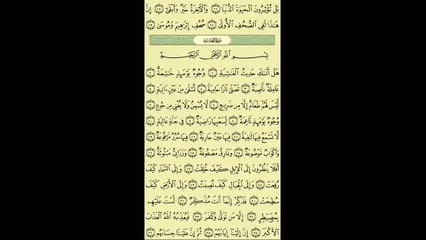 بَلْ تُؤْثِرُونَ الْحَيَوٰةَ الدُّنْيَا ۝١٦ وَالْآخِرَةُ خَيْرٌ وَأَبْقَىٰ ۝١٧ إِنَّ
هَٰذَا لَفِي الصُّحُفِ الْأُولَىٰ ۝١٨ صُحُفِ إِبْرَٰهِيمَ وَمُوسَىٰ ۝١٩
بِسْمِ اللَّهِ الرَّحْمَٰنِ الرَّحِيمِ
هَلْ أَتَىٰكَ حَدِيثُ الْغَٰشِيَةِ ۝١ وُجُوهٌ يَوْمَئِذٍ خَٰشِعَةٌ ۝٢
عَامِلَةٌ نَّاصِبَةٌ ۝٣ تَصْلَىٰ نَارًا حَامِيَةً ۝٤ تُسْقَىٰ مِنْ عَيْنٍ ءَانِيَةٍ ۝٥
لَّيْسَ لَهُمْ طَعَامٌ إِلَّا مِن ضَرِيعٍ ۝٦ لَّا يُسْمِنُ وَلَا يُغْنِي مِن جُوعٍ ۝٧
وُجُوهٌ يَوْمَئِذٍ نَّاعِمَةٌ ۝٨ لِّسَعْيِهَا رَاضِيَةٌ ۝٩ فِي جَنَّةٍ عَالِيَةٍ ۝١٠
لَّا تَسْمَعُ فِيهَا لَٰغِيَةً ۝١١ فِيهَا عَيْنٌ جَارِيَةٌ ۝١٢ فِيهَا سُرُرٌ مَّرْفُوعَةٌ ۝١٣
وَأَكْوَابٌ مَّوْضُوعَةٌ ۝١٤ وَنَمَارِقُ مَصْفُوفَةٌ ۝١٥ وَزَرَابِيُّ مَبْثُوثَةٌ ۝١٦
أَفَلَا يَنظُرُونَ إِلَى الْإِبِلِ كَيْفَ خُلِقَتْ ۝١٧ وَإِلَى السَّمَاءِ كَيْفَ
رُفِعَتْ ۝١٨ وَإِلَى الْجِبَالِ كَيْفَ نُصِبَتْ ۝١٩ وَإِلَى الْأَرْضِ كَيْفَ
سُطِحَتْ ۝٢٠ فَذَكِّرْ إِنَّمَا أَنتَ مُذَكِّرٌ ۝٢١ لَّسْتَ عَلَيْهِم
بِمُصَيْطِرٍ ۝٢٢ إِلَّا مَن تَوَلَّىٰ وَكَفَرَ ۝٢٣ فَيُعَذِّبُهُ اللَّهُ الْعَذَابَ
الْأَكْبَرَ ۝٢٤ إِنَّ إِلَيْنَا إِيَابَهُمْ ۝٢٥ ثُمَّ إِنَّ عَلَيْنَا حِسَابَهُم ۝٢٦